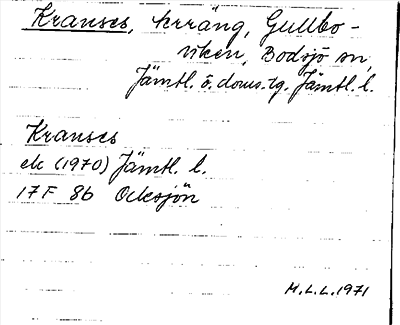 Kranses, terräng, Gullbo-
viken, Bodsjö sn,
Jämtl. ö. doms. tg. Jämtl. l.
Kranses
ek (1970) Jämtl. l.
17F 8b Ocksjön
M.L.L. 1971